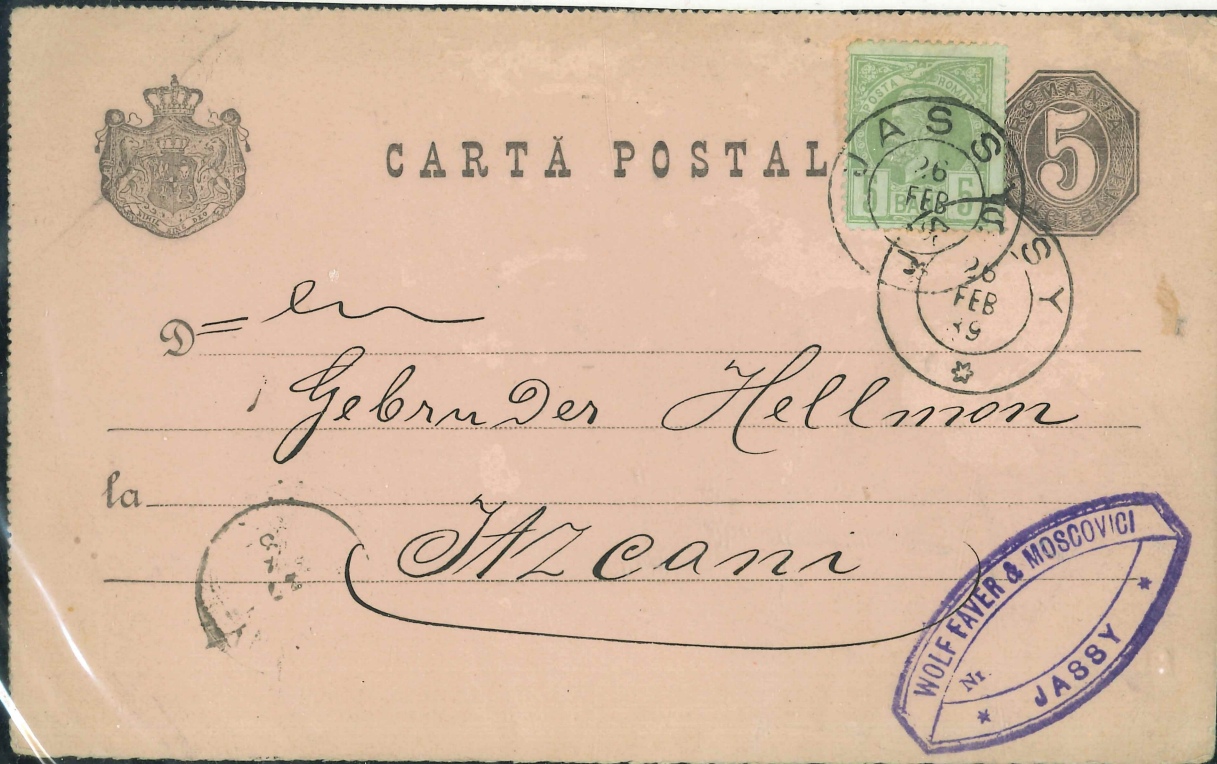 CARTĂ POSTAL
ROMANIA
5
POSTA ROMA
5 BA 5
JASSY
26
FEB
SY
26
FEB
89
NIHIL SINE DEO
D= en
Gebruder Hellmon
la
Itzcani
WOLF FAVER & MOSCOVICI
Nr.
* JASSY *